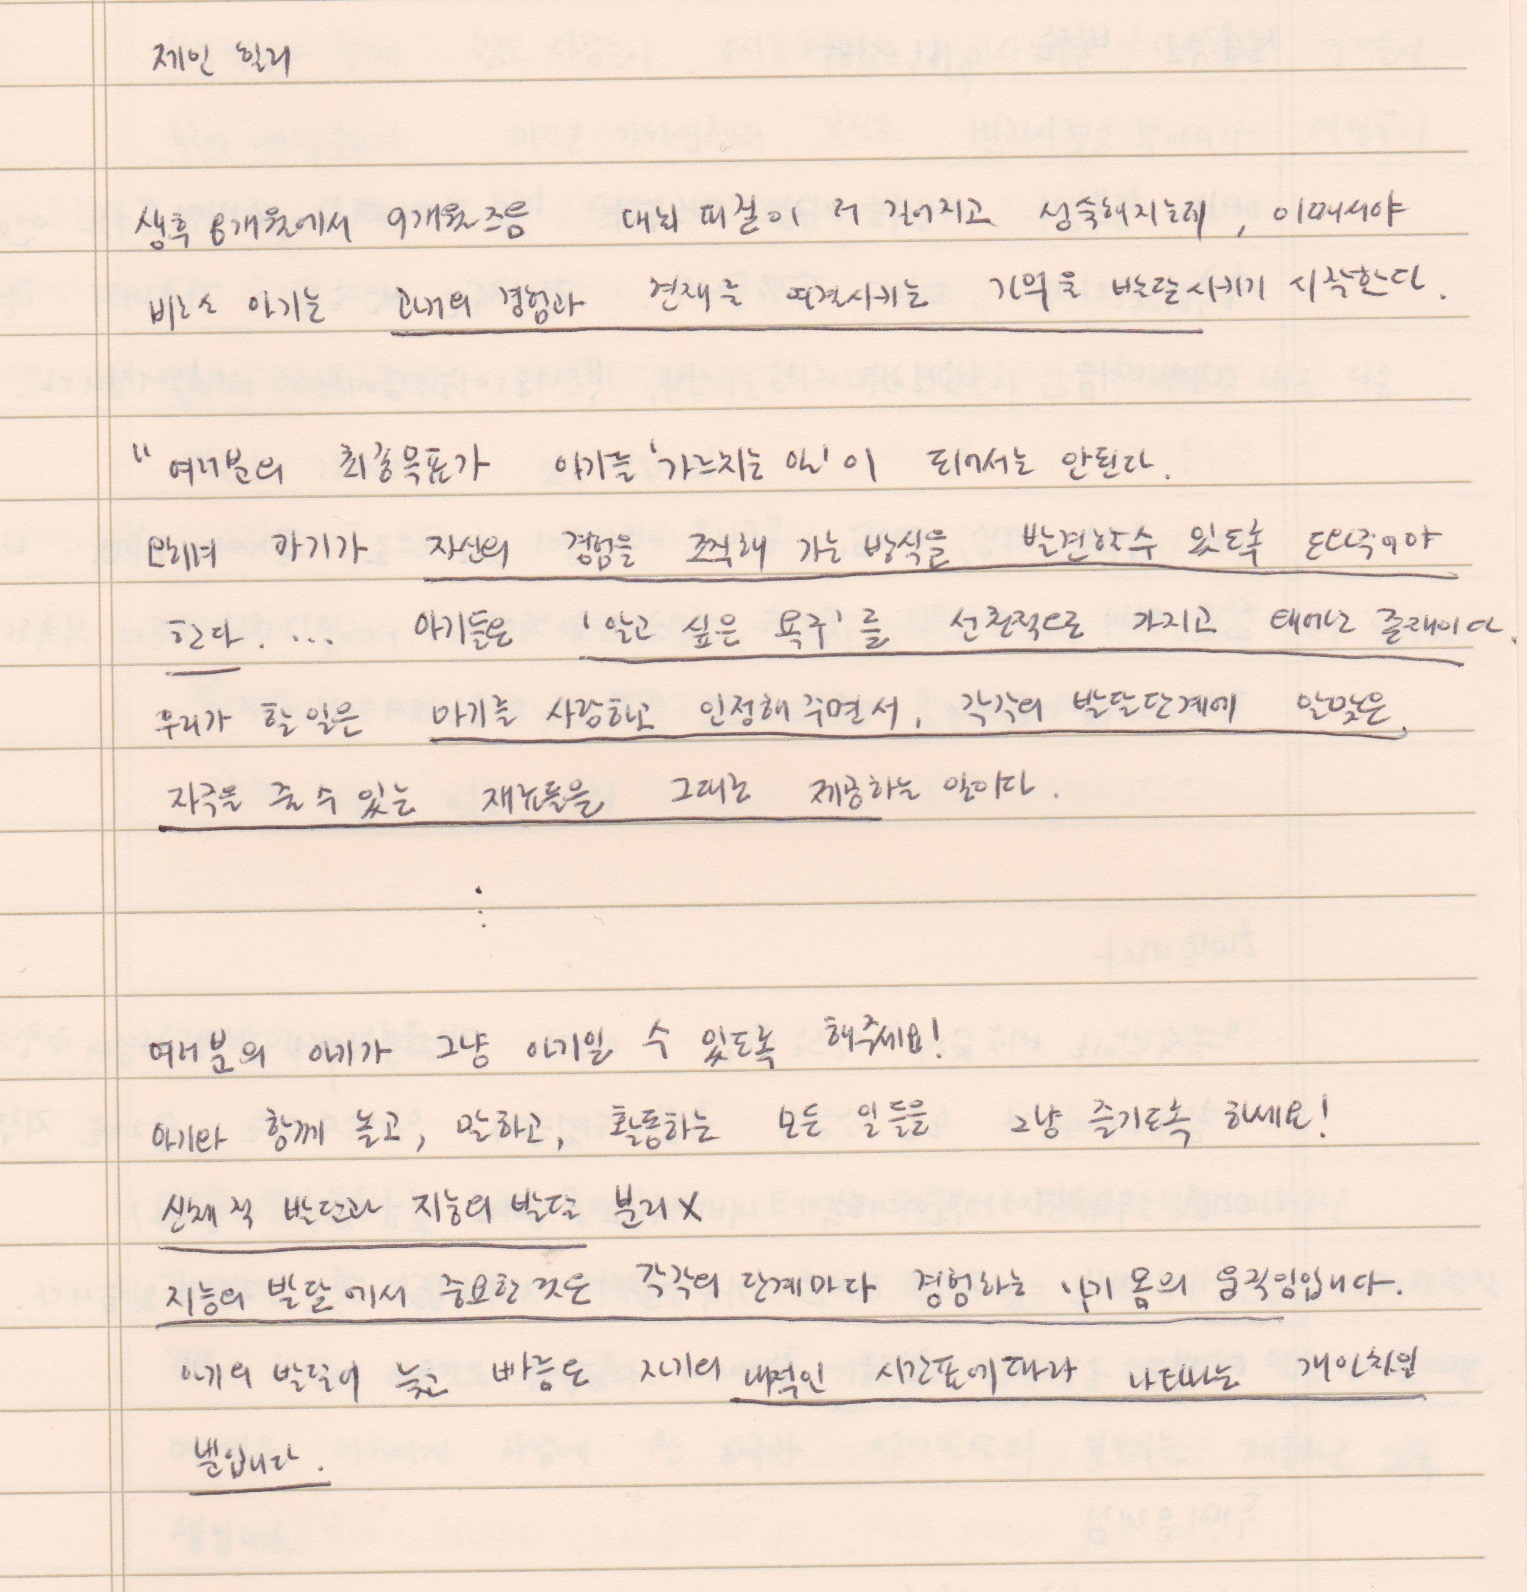 제인 힐리
생후 8개월에서 9개월즈음 대뇌피질이 더 길어지고 성숙해지는데, 이때서야
비로소 아기는 과거의 경험과 현재를 연결시키는 기억을 발달시키기 시작한다.
"여러분의 최종목표가 아기를 '가르치는 일'이 되어서는 안된다.
오히려 아기가 자신의 경험을 조직해 가는 방식을 발견할수 있도록 도와주어야
한다. ... 아기들은 '알고 싶은 욕구'를 선천적으로 가지고 태어난 존재이다.
우리가 할 일은 아기를 사랑하고 인정해 주면서, 각각의 발달단계에 알맞은
자극을 줄 수 있는 재료들을 그대로 제공하는 일이다.
⋮
여러분의 아기가 그냥 아기일 수 있도록 해주세요!
아기와 함께 놀고, 말하고, 활동하는 모든 일들을 그냥 즐기도록 하세요!
신체적 발달과 지능의 발달 분리X
지능의 발달에서 중요한 것은 각각의 단계마다 경험하는 아기 몸의 움직임입니다.
아기의 발달이 늦고 빠름은 자기의 내적인 시간표에 따라 나타나는 개인차일
뿐입니다.